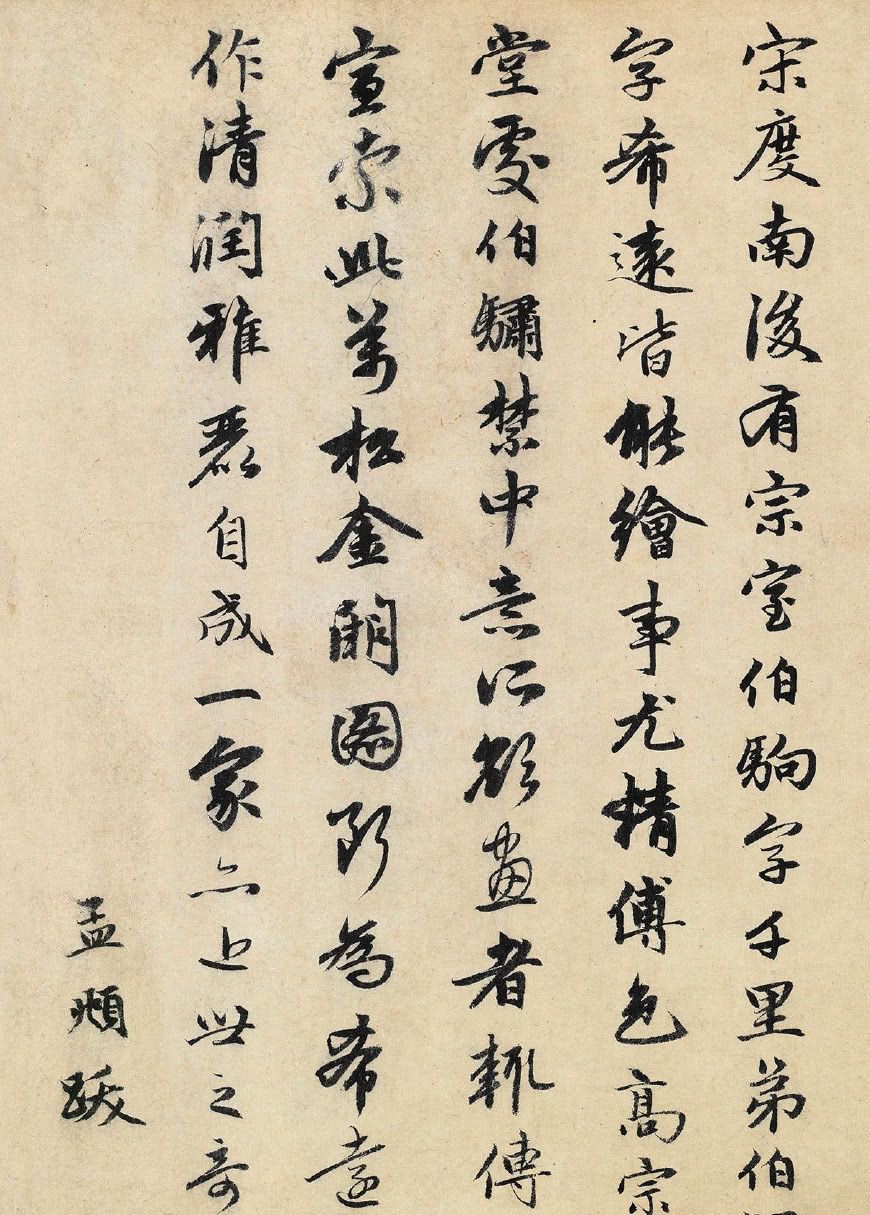 宋度南後有宗室伯駒字千里弟伯
字希遠皆能繪事尤精傅色髙宗
堂處伯驌禁中意所欲畫者輒傳
宣索此萬松金闕圖即為希遠
作清潤雅麗自成一家亦近世之奇
孟頫跋